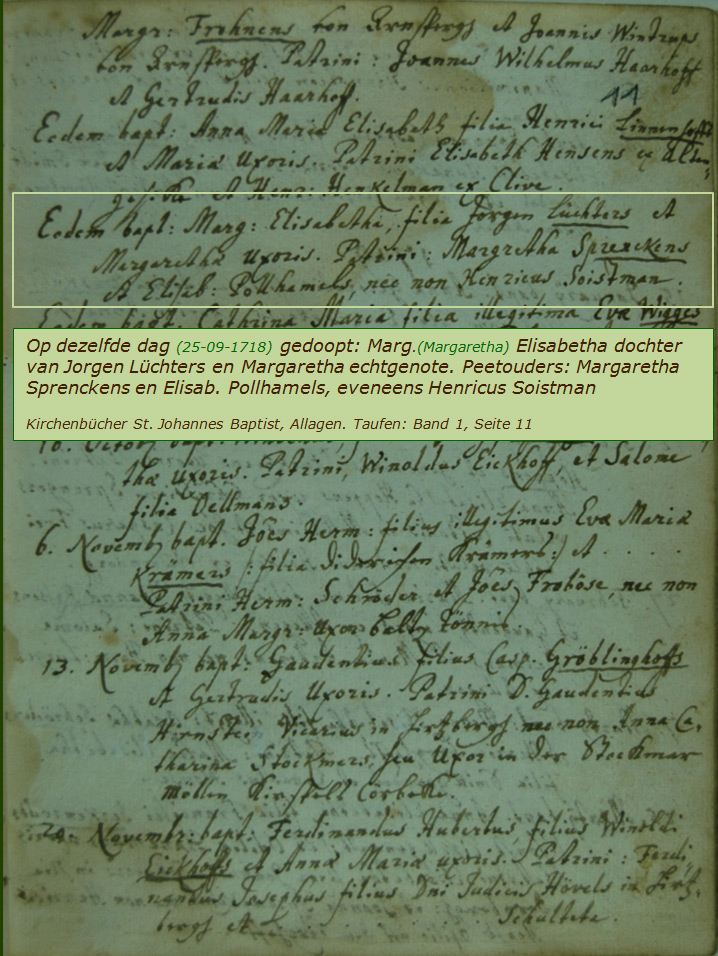 Margr: Frohnens von Arnsperg et Joannis Wintrups
von Arnsperg. Patrini: Joannes Wilhelmus Haarhoff
et Gertrudis Haarhoff.
11
Eodem bapt: Anna Maria Elisabeth filia Henrici Linnenhoffs
et Maria Uxoris. Patrini Elisabeth Hensens ex Alten-
et Henr: Henkelman ex Clive.
Eodem bapt: Marg: Elisabetha, filia Jorgen Lüchters et
Margaretha Uxoris. Patrini: Margretha Sprenckens
et Elisab: Pollhamels, nec non Henricus Soistman.
Eodem bapt. Cathrina Maria filia illegitima Eva Wigges
Op dezelfde dag (25-09-1718) gedoopt: Marg.(Margaretha) Elisabetha dochter
van Jorgen Lüchters en Margaretha echtgenote. Peetouders: Margaretha
Sprenckens en Elisab. Pollhamels, eveneens Henricus Soistman
Kirchenbücher St. Johannes Baptist, Allagen. Taufen: Band 1, Seite 11
tha uxoris. Patrini, Winoldus Eickhoff, et Salome
filia Oellmans.
6. Novemb bapt. Jões Herm: filius illegitimus Eva Maria
Krämers /: filia Diderichen Krämers :/ et . . . . .
Patrini Herm: Schröder et Jões Froböse, nec non
Anna Margr: uxor Balty Tonnis.
13. Novemb bapt: Gaudentius filius Casp. Gröblinghoffs
et Gertrudis Uxoris. Patrini D. Gaudentius
Hirnstei Vicarius in Hirtzberg nec non Anna Ca-
tharina Stockmers, seu Uxor in der Stockmar
möllen Kirspell Corbecke.
20. Novembr: bapt: Ferdinandus Hubertus, filius Winoldi
Eickhoffs et Anna Maria uxoris. Patrini: Ferdi-
nandus Josephus filius Dni Judicis Hövels in Hirtz-
bergh et Schultete.